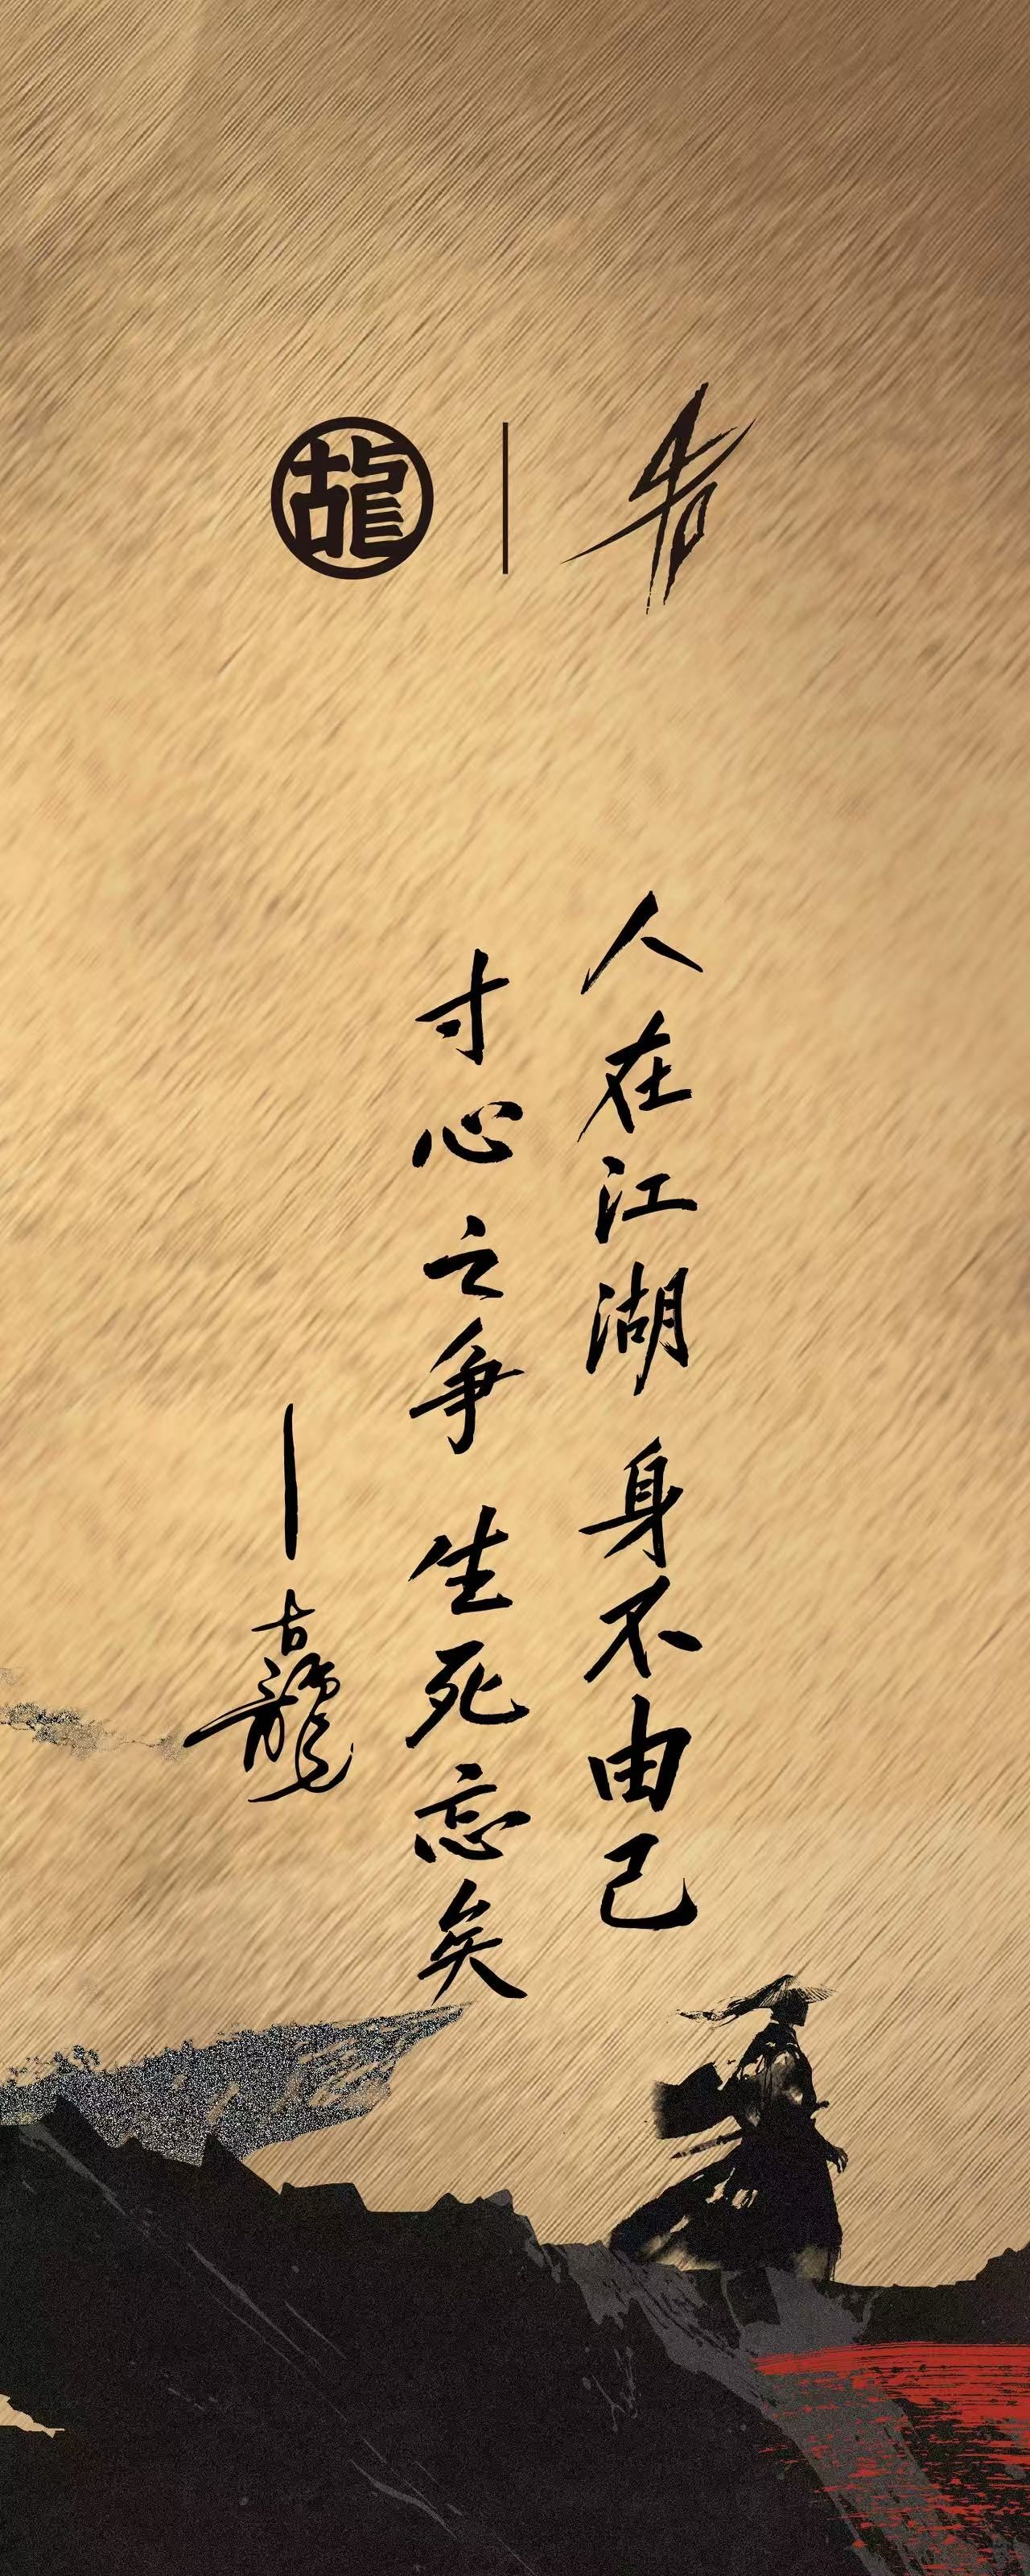 古龍
人在江湖 身不由己
寸心之争 生死忘矣
—古龍